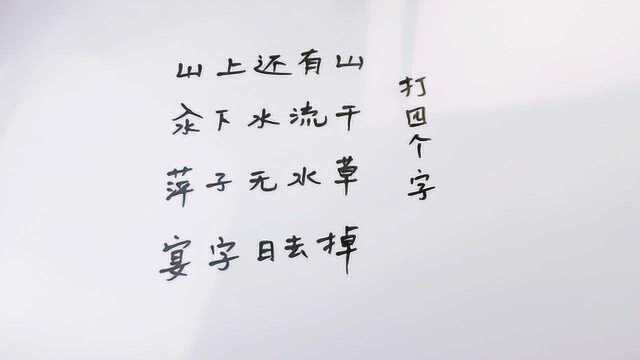 山上还有山
汆下水流干
萍子无水草
宴字日去掉
打四个字